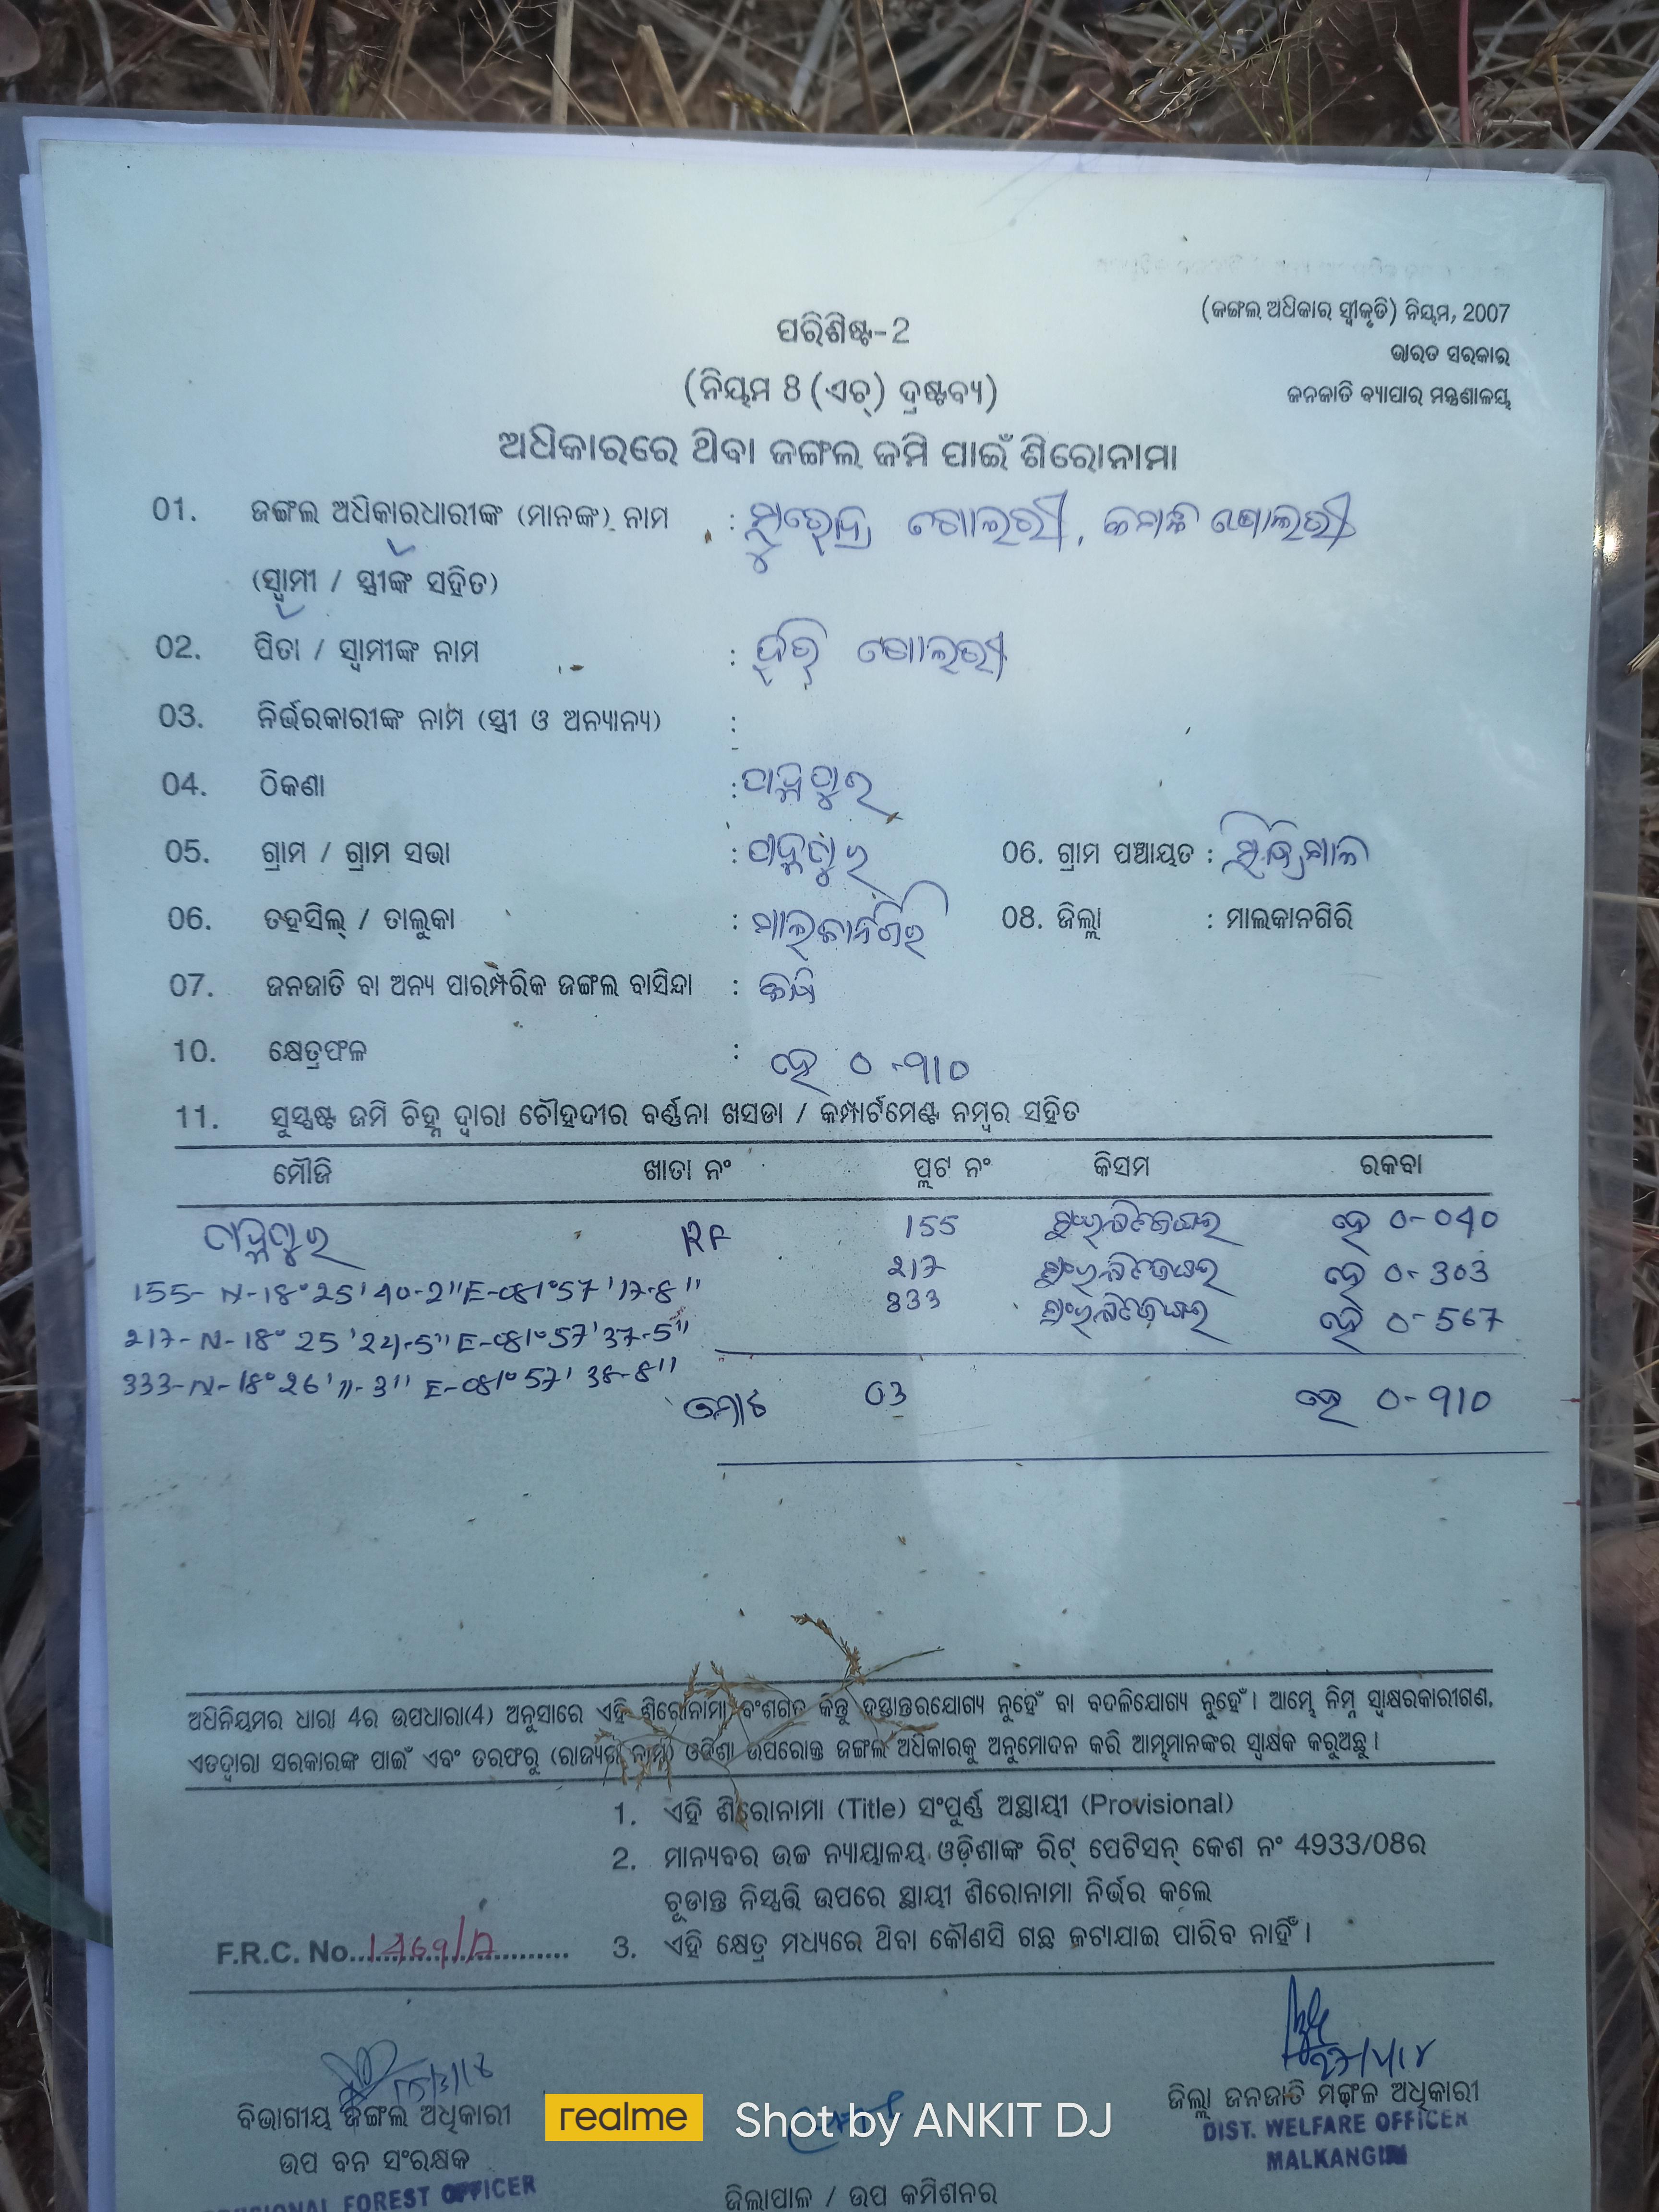 (ଜଙ୍ଗଲ ଅଧିକାର ସ୍ୱୀକୃତି) ନିୟମ, 2007
ଭାରତ ସରକାର
ଜନଜାତି ବ୍ୟାପାର ମନ୍ତ୍ରଣାଳୟ
ପରିଶିଷ୍ଟ-2
(ନିୟମ 8 (ଏଚ୍) ଦ୍ରଷ୍ଟବ୍ୟ)
ଅଧିକାରରେ ଥିବା ଜଙ୍ଗଲ ଜମି ପାଇଁ ଶିରୋନାମା
01. ଜଙ୍ଗଲ ଅଧିକାରଧାରୀଙ୍କ (ମାନଙ୍କ) ନାମ :
(ସ୍ୱାମୀ / ସ୍ତ୍ରୀଙ୍କ ସହିତ)
02. ପିତା / ସ୍ୱାମୀଙ୍କ ନାମ :
03. ନିର୍ଭରକାରୀଙ୍କ ନାମ (ସ୍ତ୍ରୀ ଓ ଅନ୍ୟାନ୍ୟ) :
04. ଠିକଣା :
05. ଗ୍ରାମ / ଗ୍ରାମ ସଭା : 06. ଗ୍ରାମ ପଞ୍ଚାୟତ :
06. ତହସିଲ୍ / ତାଲୁକା : ମାଲକାନଗିରି 08. ଜିଲ୍ଲା : ମାଲକାନଗିରି
07. ଜନଜାତି ବା ଅନ୍ୟ ପାରମ୍ପରିକ ଜଙ୍ଗଲ ବାସିନ୍ଦା :
10. କ୍ଷେତ୍ରଫଳ : ହେ 0-910
11. ସୁସ୍ପଷ୍ଟ ଜମି ଚିହ୍ନ ଦ୍ୱାରା ଚୌହଦୀର ବର୍ଣ୍ଣନା ଖସଡା / କମ୍ପାର୍ଟମେଣ୍ଟ ନମ୍ବର ସହିତ
ମୌଜି ଖାତା ନଂ ପ୍ଲଟ ନଂ କିସମ ରକବା
RF 155 ହେ 0-040
155- N-18°25'40-2"E-081°57'17-8" 217 ହେ 0-303
217- N-18° 25'24-5" E-081°57'37-5" 333 ହେ 0-567
333-N-18°26'11-3" E-081°57' 38-8"
ମୋଟ 03 ହେ 0-910
ଅଧିନିୟମର ଧାରା 4ର ଉପଧାରା(4) ଅନୁସାରେ ଏହି ଶିରୋନାମା ବଂଶଗତ କିନ୍ତୁ ହସ୍ତାନ୍ତରଯୋଗ୍ୟ ନୁହେଁ ବା ବଦଳିଯୋଗ୍ୟ ନୁହେଁ । ଆମ୍ଭେ ନିମ୍ନ ସ୍ୱାକ୍ଷରକାରୀଗଣ,
ଏତଦ୍ୱାରା ସରକାରଙ୍କ ପାଇଁ ଏବଂ ତରଫରୁ (ରାଜ୍ୟର ନାମ) ଓଡିଶା ଉପରୋକ୍ତ ଜଙ୍ଗଲ ଅଧିକାରକୁ ଅନୁମୋଦନ କରି ଆମ୍ଭମାନଙ୍କର ସ୍ୱାର୍କ୍ଷକ କରୁଅଛୁ ।
1. ଏହି ଶିରୋନାମା (Title) ସଂପୂର୍ଣ୍ଣ ଅସ୍ଥାୟୀ (Provisional)
2. ମାନ୍ୟବର ଉଚ୍ଚ ନ୍ୟାୟାଳୟ ଓଡ଼ିଶାଙ୍କ ରିଟ୍ ପେଟିସନ୍ କେଶ ନଂ 4933/08ର
ଚୂଡାନ୍ତ ନିସ୍ପତ୍ତି ଉପରେ ସ୍ଥାୟୀ ଶିରୋନାମା ନିର୍ଭର କଲେ
F.R.C. No.
3. ଏହି କ୍ଷେତ୍ର ମଧ୍ୟରେ ଥିବା କୌଣସି ଗଛ କଟାଯାଇ ପାରିବ ନାହିଁ ।
ବିଭାଗୀୟ ଜଙ୍ଗଲ ଅଧିକାରୀ
ଉପ ବନ ସଂରକ୍ଷକ
DIVISIONAL FOREST OFFICER
ଜିଲ୍ଲା ଜନଜାତି ମଙ୍ଗଳ ଅଧିକାରୀ
DIST. WELFARE OFFICER
MALKANGIRI
ଜିଲାପାଳ / ଉପ କମିଶନର
realme Shot by ANKIT DJ